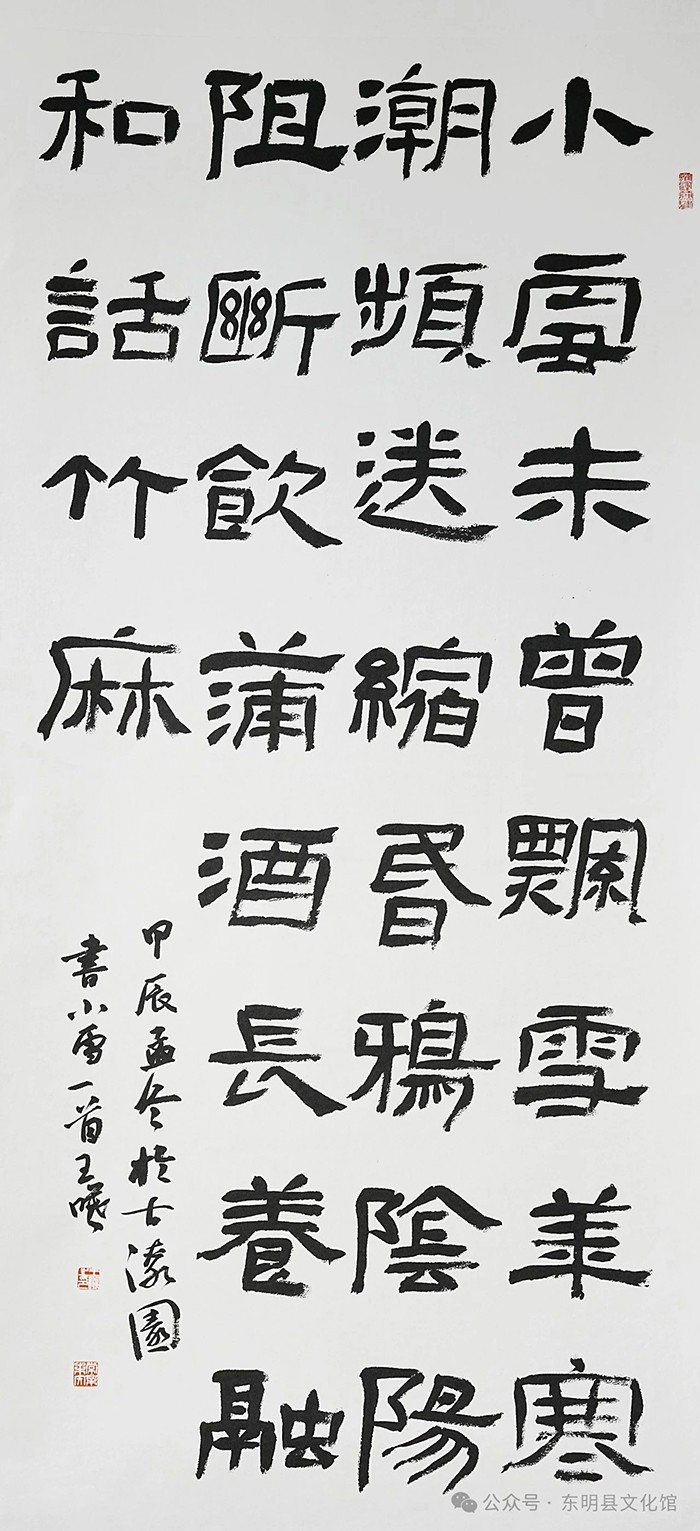 小雪未曾飄雪華寒
潮頻送縮昏鴉陰陽
阻斷飲蒲酒長養融
和話竹麻
甲辰孟冬於古漆園
書小雪一首王
公众号·东明县文化馆